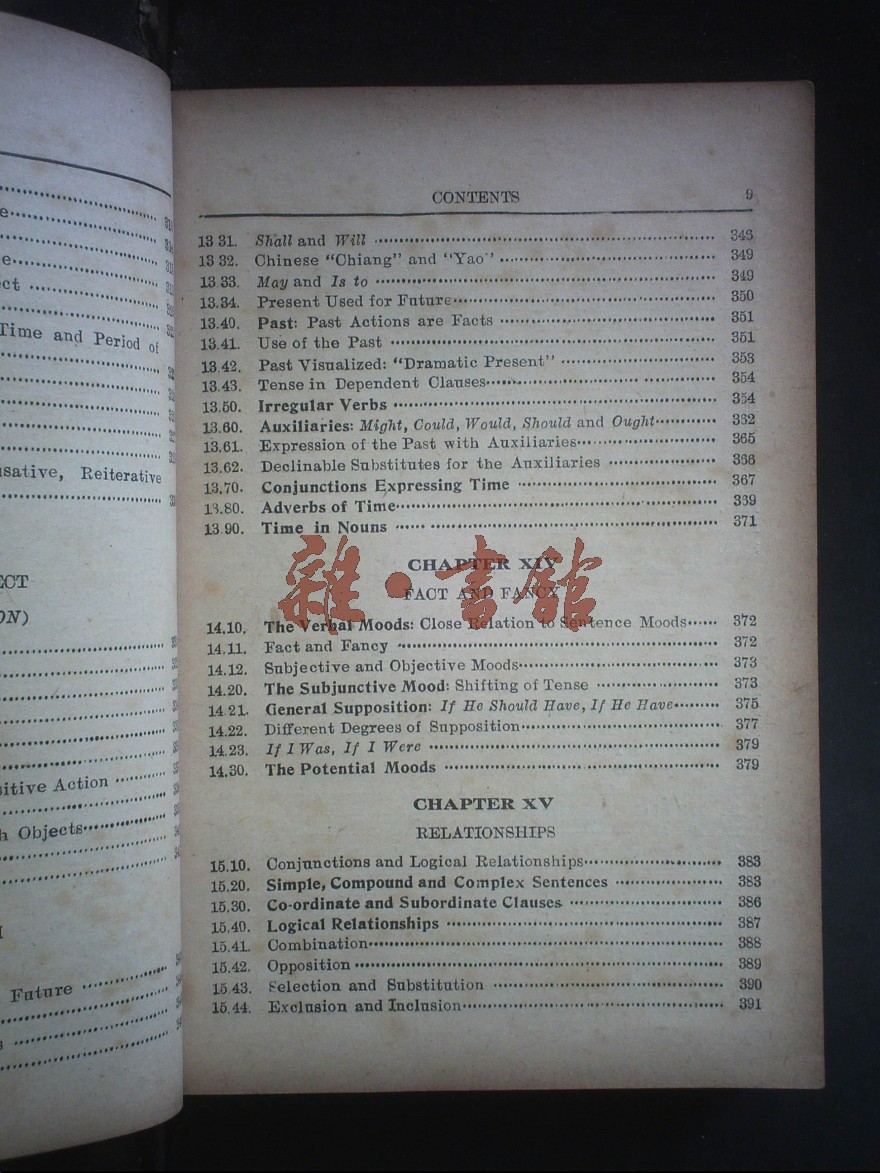 Time and Period of
usative, Reiterative
ECT
ON)
sitive Action
h Objects
Future
CONTENTS 9
13 31. Shall and Will 348
13 32. Chinese “Chiang” and “Yao” 349
13.33. May and Is to 349
13.34. Present Used for Future 350
13.40. Past: Past Actions are Facts 351
13.41. Use of the Past 351
13.42. Past Visualized: “Dramatic Present” 353
13.43. Tense in Dependent Clauses 354
13.50. Irregular Verbs 354
13.60. Auxiliaries: Might, Could, Would, Should and Ought 362
13.61. Expression of the Past with Auxiliaries 365
13.62. Declinable Substitutes for the Auxiliaries 366
13.70. Conjunctions Expressing Time 367
13.80. Adverbs of Time 369
13.90. Time in Nouns 371
CHAPTER XIV
FACT AND FANCY
雜·書館
14.10. The Verbal Moods: Close Relation to Sentence Moods 372
14.11. Fact and Fancy 372
14.12. Subjective and Objective Moods 373
14.20. The Subjunctive Mood: Shifting of Tense 373
14.21. General Supposition: If He Should Have, If He Have 375
14.22. Different Degrees of Supposition 377
14.23. If I Was, If I Were 379
14.30. The Potential Moods 379
CHAPTER XV
RELATIONSHIPS
15.10. Conjunctions and Logical Relationships 383
15.20. Simple, Compound and Complex Sentences 383
15.30. Co-ordinate and Subordinate Clauses 386
15.40. Logical Relationships 387
15.41. Combination 388
15.42. Opposition 389
15.43. Selection and Substitution 390
15.44. Exclusion and Inclusion 391